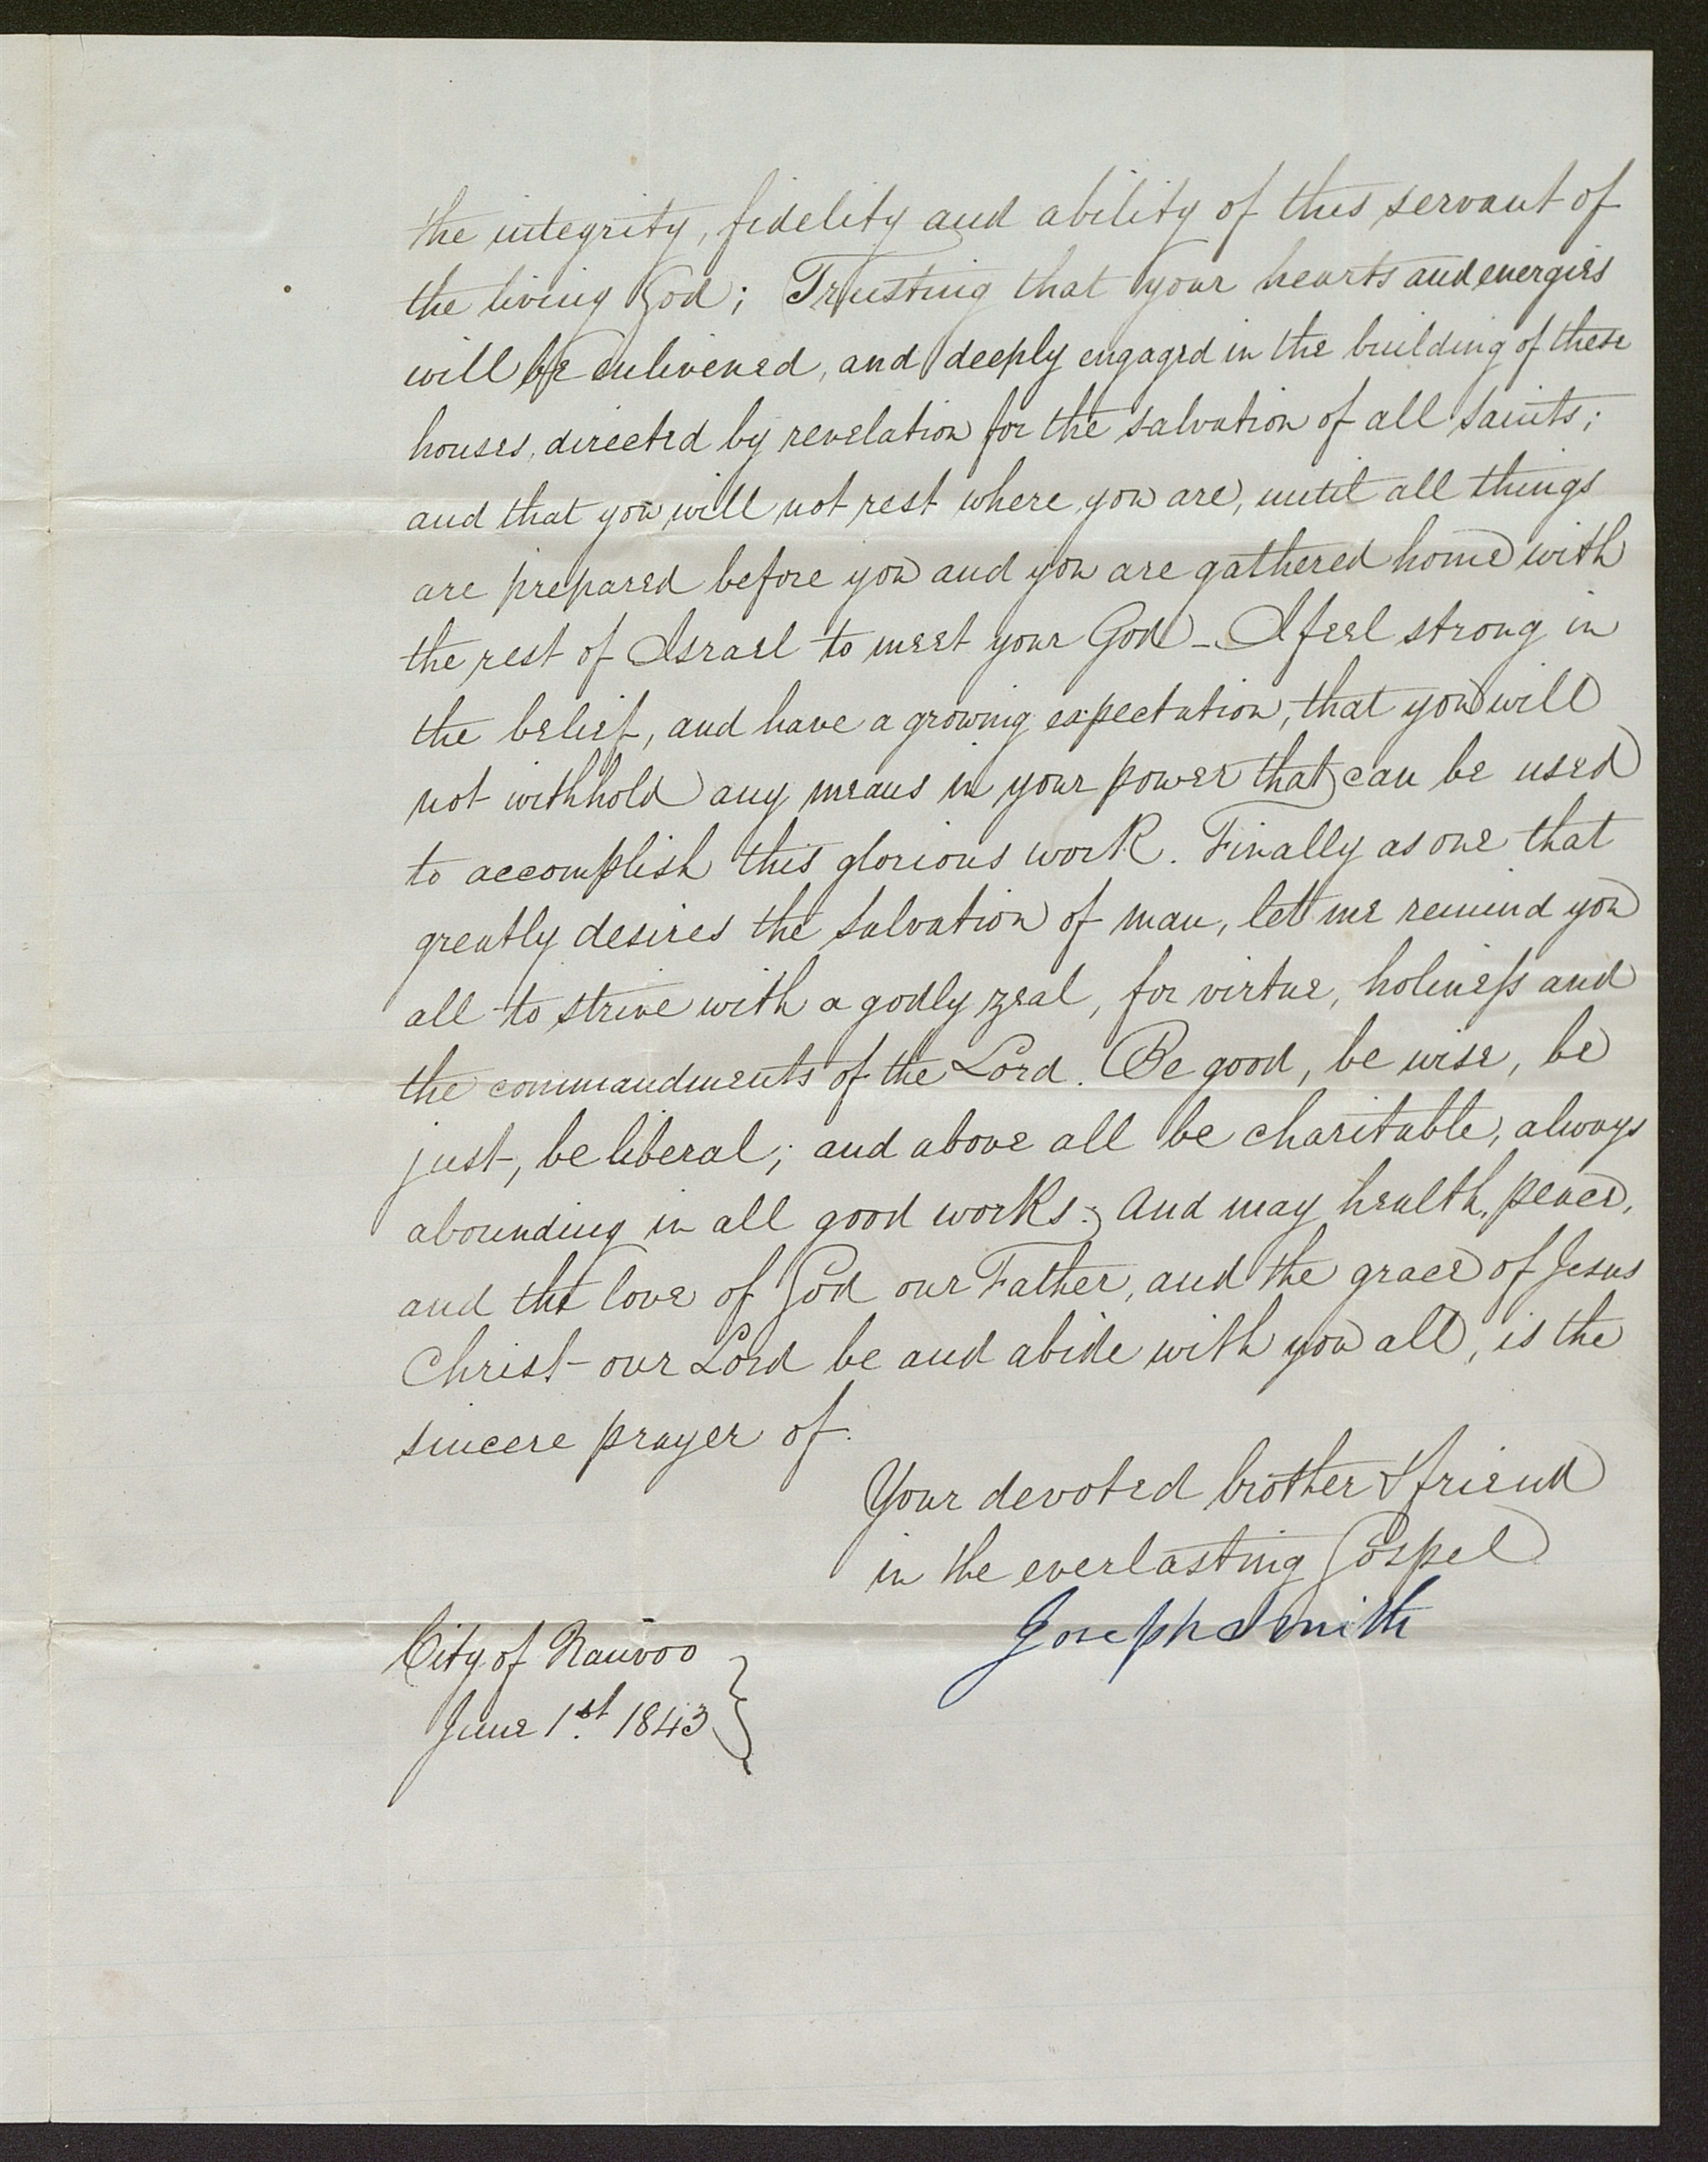 the integrity, fidelity and ability of this servant of
the living God; Trusting that your hearts and energies
will be enlivened, and deeply engaged in the building of these
houses, directed by revelation for the salvation of all saints;
and that you will not rest where you are, until all things
are prepared before you and you are gathered home with
the rest of Israel to meet your God – I feel strong in
the belief, and have a growing expectation, that you will
not withhold any means in your power that can be used
to accomplish this glorious work. Finally as one that
greatly desires the salvation of man, let me remind you
all to strive with a godly zeal, for virtue, holiness and
the commandments of the Lord. Be good, be wise, be
just, be liberal; and above all be charitable, always
abounding in all good works; And may health, peace,
and the love of God our Father, and the grace of Jesus
Christ our Lord be and abide with you all, is the
sincere prayer of
Your devoted brother & friend
in the everlasting Gospel
Joseph Smith
City of Nauvoo
June 1st 1843